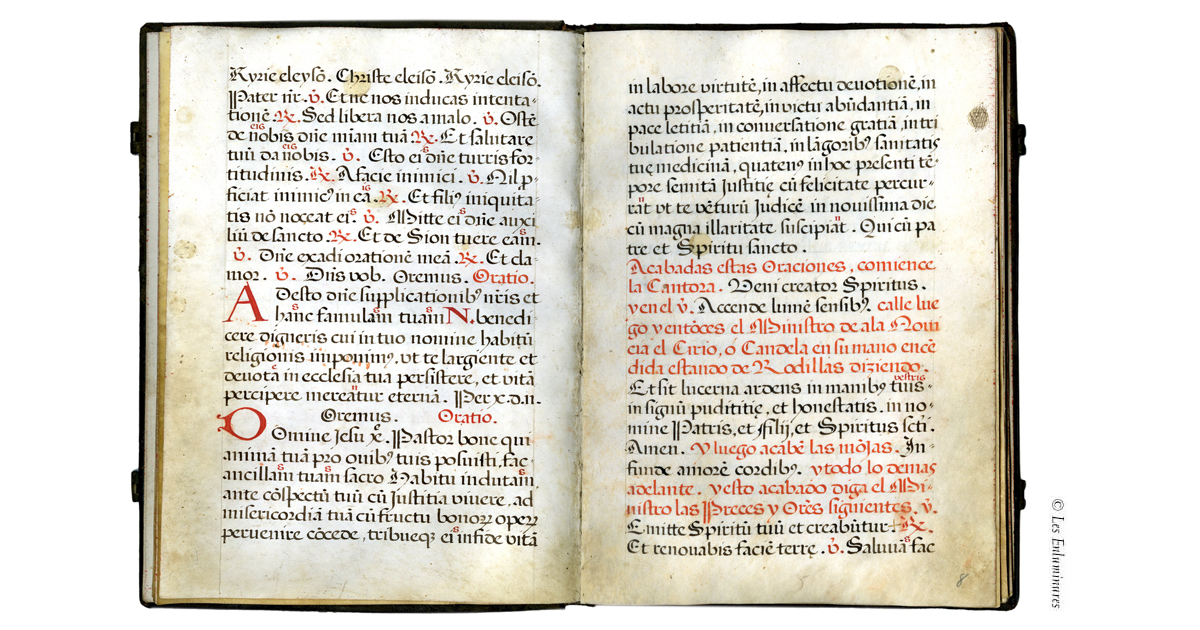 Kyrie eleysō. Christe eleisō. Kyrie eleisō.
Pater nr̄. ℣. Et ne nos inducas intenta-
tionē ℟. Sed libera nos a malo. ℣. Ostē
eis
de nobis dn̄e mīam tuā ℟. Et salutare
eis
tuū da nobis. ℣. Esto ei s dn̄e turris for-
titudinis. ℟. A facie inimici. ℣. Nil p-
is
ficiat inimicꝰ in eā. ℟. Et filiꝰ iniquita-
tis nō noceat ei s. ℣. Mitte ei s dn̄e auxi
liū de sancto. ℟. Et de Sion tuere eam s.
℣. Dn̄e exaudi orationē meā. ℟. Et cla-
mor. ℣. Dn̄s vob. Oremus. Oratio.
Adesto dn̄e supplicationibꝰ nr̄is et
hanc s famulam s tuam s N. benedi
cere digneris cui in tuo nomine habitū
religionis imponimꝰ, ut te largiente et
devota in ecclesia tua persistere, et vitā
percipere mereatur eternā. Per x. d. n.
Oremus. Oratio.
Domine Jesu xe. Pastor bone qui
animā tuā pro ovibꝰ tuis posuisti, fac
ancillam s tuam s sacro Habitu indutam s,
ante cōspectū tuū cū Justitia vivere, ad
misericordiā tuā cū fructu bonoꝝ opeꝝ
pervenire cōcede, tribueqꝫ ei s in fide vitā
in labore virtutē, in affectu devotionē, in
actu prosperitatē, in victu abūdantiā, in
pace letitiā, in conversatione gratiā, in tri
bulatione patientiā, in lāgoribꝰ sanitatis
tuę medicinā, quatenꝰ in hoc presenti tē-
pore semitā Justitię cū felicitate percur-
rāt ut te vēturū Judicē in novissima die
cū magna illaritate suscipiāt. Qui cū pa
tre et Spiritu sancto.
Acabadas estas Oraciones, comience
la Cantora. Veni creator Spiritus.
y en el ℣. Accende lumē sensibꝰ. calle lue
go y entōces el Ministro de a la Novi
cia el Cirio, ó Candela en su mano encē
dida estando de Rodillas diziendo.
vestris
Et sit lucerna ardens in manibꝰ tuis-
in signū pudititię, et honestatis. in no-
mine Patris, et filij, et Spiritus sctī.
Amen. Y luego acabē las mōjas. In-
funde amorē cordibꝰ. y todo lo demas
adelante. y esto acabado diga el Mi-
nistro las Preces y Orēs siguientes. ℣.
Emitte Spiritū tuū et creabūtur ℟.
Et renovabis faciē terrę. ℣. Salva s fac
8
© Les Enluminures